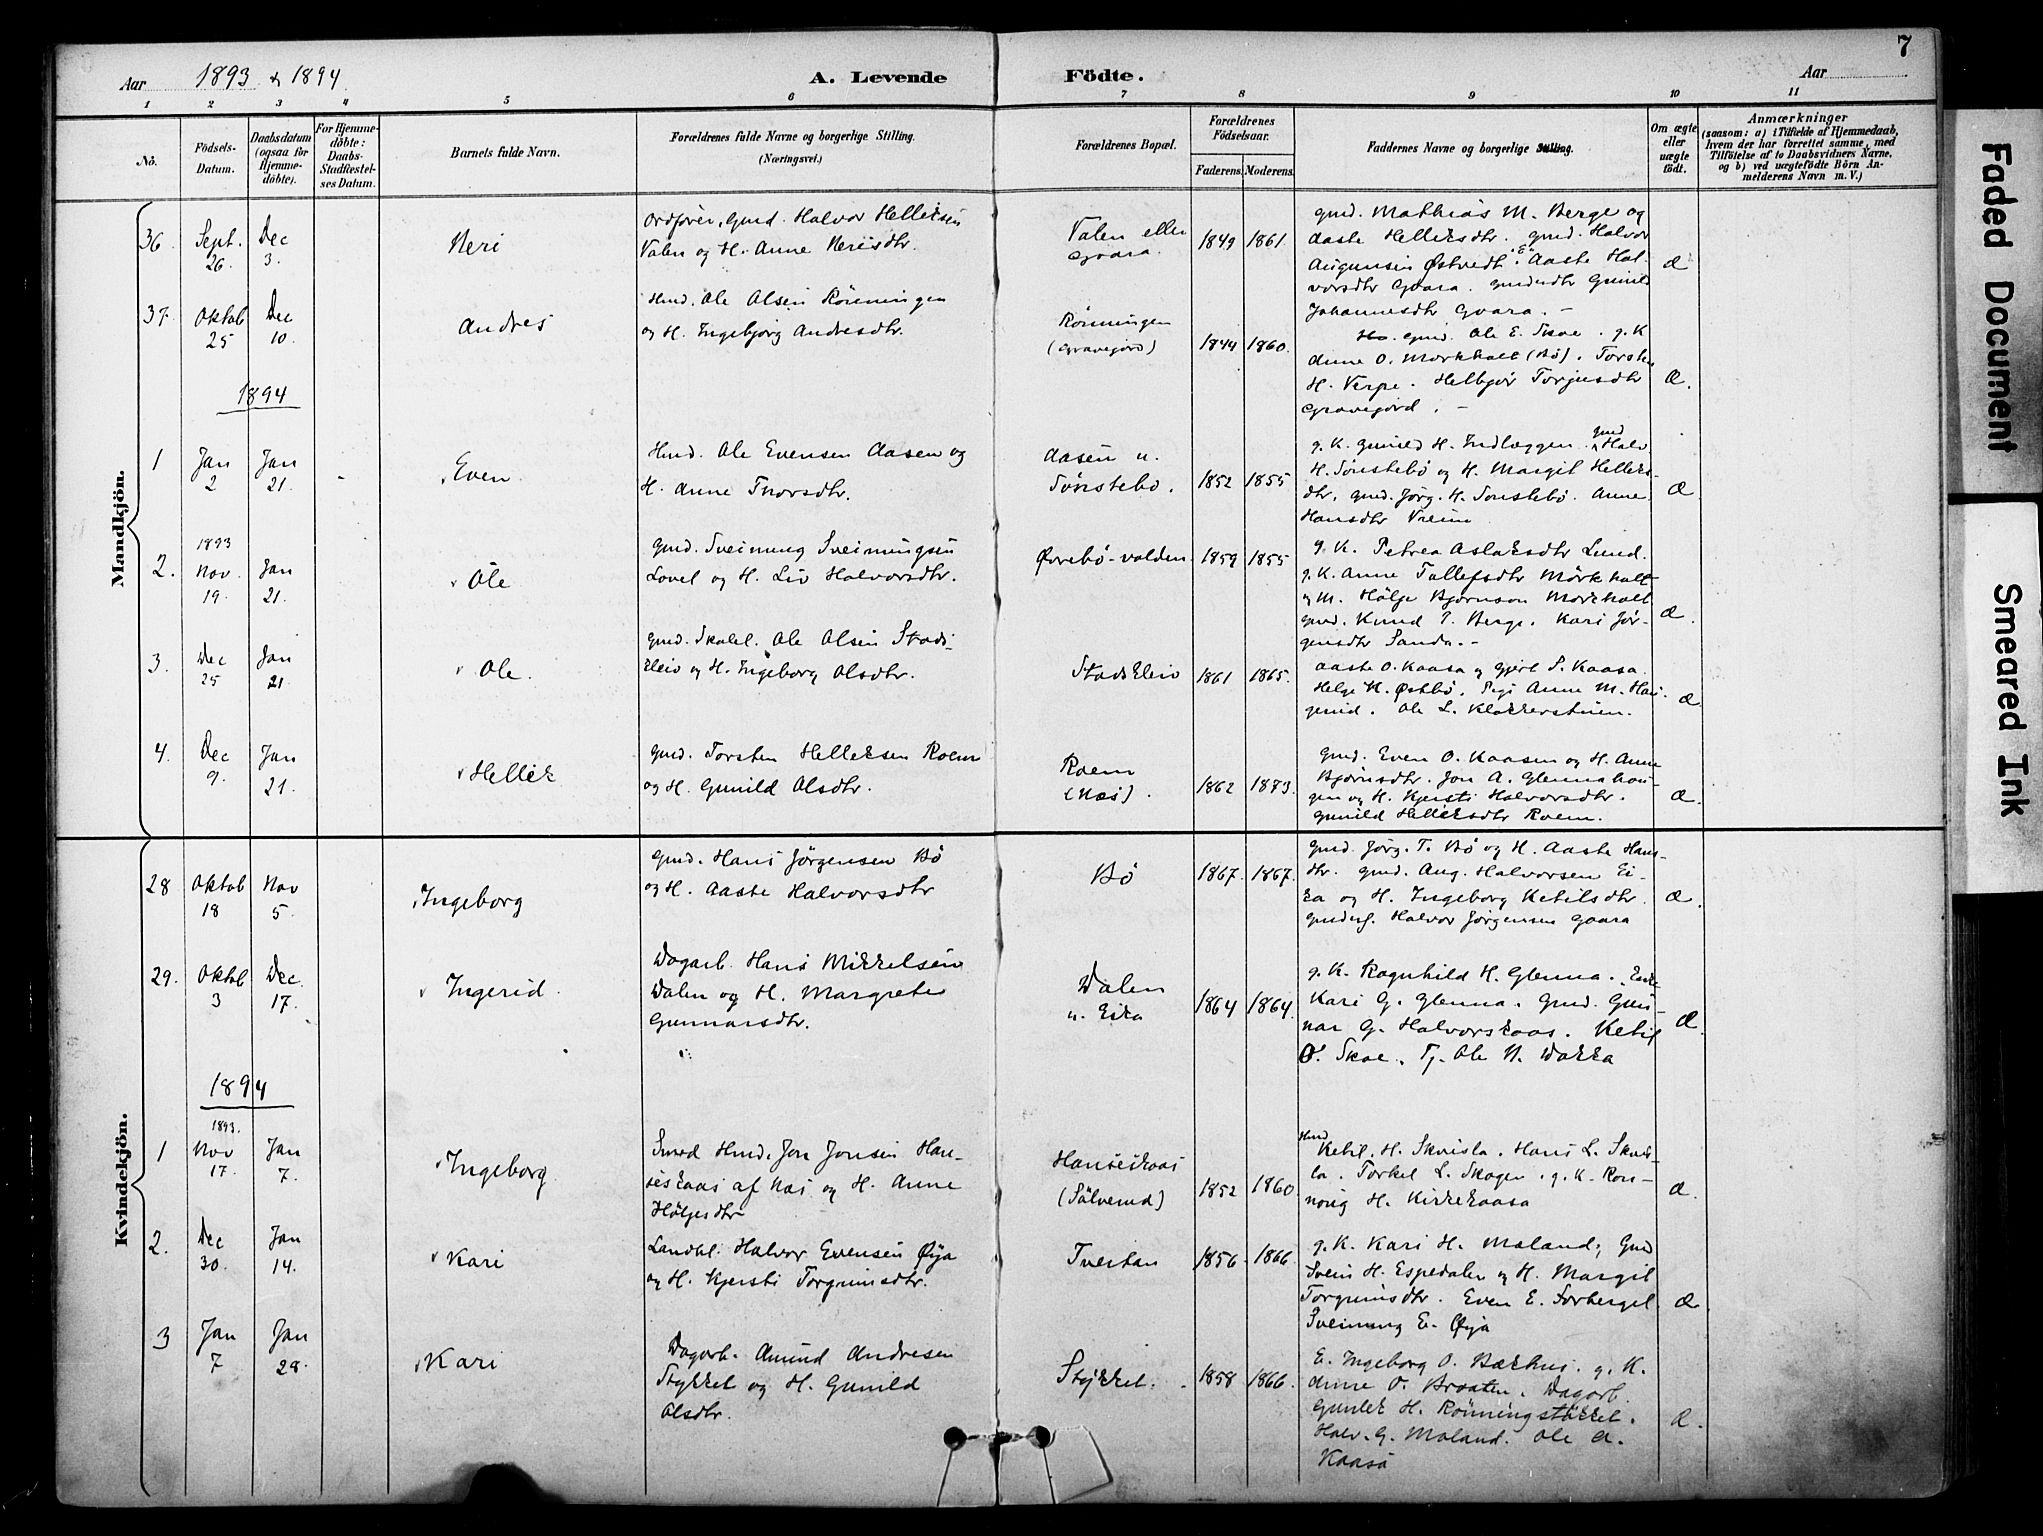 7
Aar 1893 & 1894.
A. Levende Födte.
Aar
1 2 3 4 5 6 7 8 9 10 11
No.
Födsels-Datum.
Daabsdatum (ogsaa for Hjemme-döbte).
For Hjemme-döbte: Daabs-Stadfæstel-ses Datum.
Barnets fulde Navn.
Forældrenes fulde Navne og borgerlige Stilling.
(Næringsvei.)
Forældrenes Bopæl.
Forældrenes Födselsaar.
Faderens. Moderens.
Faddernes Navne og borgerlige Stilling.
Om ægte eller uægte födt.
Anmærkninger
(saasom: a) i Tilfælde af Hjemmedaab, hvem der har forrettet samme, med Tilföielse af to Daabsvidners Navne, og b) ved uægtefödte Börn An-melderens Navn m. V.)
Mandkjön.
36. Sept. 26. Dec 3. Neri
Ordförer, Gmd. Halvor Helleksen
Valen og H. Anne Nerisdtr.
Valen eller Gvara. 1849 1861.
Gmd. Mathias M. Berge og
Aaste Helleksdtr. Gmd. Halvor
Augunsen Østvedt. E. Aaste Hal-
vorsdtr Gvara. Gmdsdtr Gunild
Johannesdtr Gvara. -
Æ
37. Oktob 25 Dec 10. Andres
Hmd. Ole Olsen Rönningen
og H. Ingebjörg Andresdtr.
Rönningen (Gravejord) 1844 1860.
Gmd. Ole E. Skoe. g. K
Anne O. Mörkholt (Bö).
H. Verpe. Helbjör Torjusdtr
Gravejord. -
Æ.
1894
1 Jan 2 Jan 21. Even.
Hmd. Ole Evensen Aasen og
H. Anne Thorsdtr.
Aasen u. Sönstebö. 1852 1855
g. K. Gunild H. Indlæggen. Gmd Halv.
H. Sönstebö og H. Margit Helleks-
dtr. Gmd. Jörg. H. Sönstebö. Anne
Hansdtr Vreim
Æ
2. 1893 Nov. 19. Jan 21. Ole
Gmd. Sveinung Sveinungsen
Lovel og H. Liv Halvorsdtr.
Øvrebö-valden 1859 1855
g. K. Petrea Aslaksdtr Lund.
g. K. Anne Tallefsdtr Mörkholt
og M. Hölje Björnson Mörkholt
Gmd. Knud T. Berge. Kari Jör-
gensdtr Sanda. -
Æ.
3. Dec 25 Jan 21. Ole.
Gmd. Skolel. Ole Olsen Stads-
kleiv og H. Ingeborg Olsdtr.
Stadskleiv 1861 1865.
Aaste O. Kaasa og Gjert S. Kaasa.
Helge K. Østebö. Pige Anne M. Har-
Ole L. Klokkerstuen.
Æ
4. Dec 9. Jan 21. Hellek
Gmd. Torsten Helleksen Roem
og H. Gunild Olsdtr.
Roem (Næs). 1862 1873.
Gmd. Even O. Kaasen og H. Anne
Björnsdtr. Jon A. Glennahau-
gen og H. Kjersti Halvorsdtr.
Gunild Helleksdtr Roem.
Æ.
Kvindekjön.
28 Oktob 18 Nov 5. Ingeborg
Gmd. Hans Jörgensen Bö
og H. Aaste Halvorsdtr
Bö 1867. 1867.
Gmd. Jörg. T. Bö og H. Aaste Hans-
dtr. Gmd. Aug. Halvorsen Ei-
ka og H. Ingeborg Ketilsdtr.
Halvor Jörgensen Gvara
Æ.
29. Oktob 3 Dec. 17. Ingerid.
Dagarb. Hans Mikkelsen
Dalen og H. Margrete
Gunnarsdtr.
Dalen u. Eika 1864 1864.
g. K. Ragnhild H. Glenna. Enke
Kari G. Glenna. Gmd. Gun-
nar G. Halvorskaas. Ketil
O. Skoe. Tj. Ole N. Dakka
Æ.
1894
1 1893. Nov 17. Jan 7. Ingeborg
Smed Hmd. Jon Jonsen Han-
seskaas af Næs og H. Anne
Höljesdtr
Hanseskaas (Sölverud) 1852 1860
Hmd Ketil. H. Skvisla. Hans L. Skvis-
la. Torkel L. Skogen. g. K. Ron-
noug H. Kirkekaasa
Æ.
2. Dec 30. Jan 14. Kari
Landhl. Halvor Evensen Øya
og H. Kjersti Torgrimsdtr.
Tveitan 1856 1866
g. K. Kari H. Moland; Gmd
Svein H. Espedalen og H. Margit
Torgrimsdtr. Even E. Forberget.
Sveinung E. Øya
Æ.
3 Jan 7 Jan 28. Kari
Dagarb. Amund Andresen
Stykket og H. Gunild
Olsdtr.
Stykket. 1858 1866.
E. Ingeborg O. Bækhus. g. K.
Anne O. Braaten. Dagarb.
Gunlek H. Rönningstökket.
Halv. G. Moland. Ole A.
Kaasa
Æ.
Faded Document
Smeared Ink